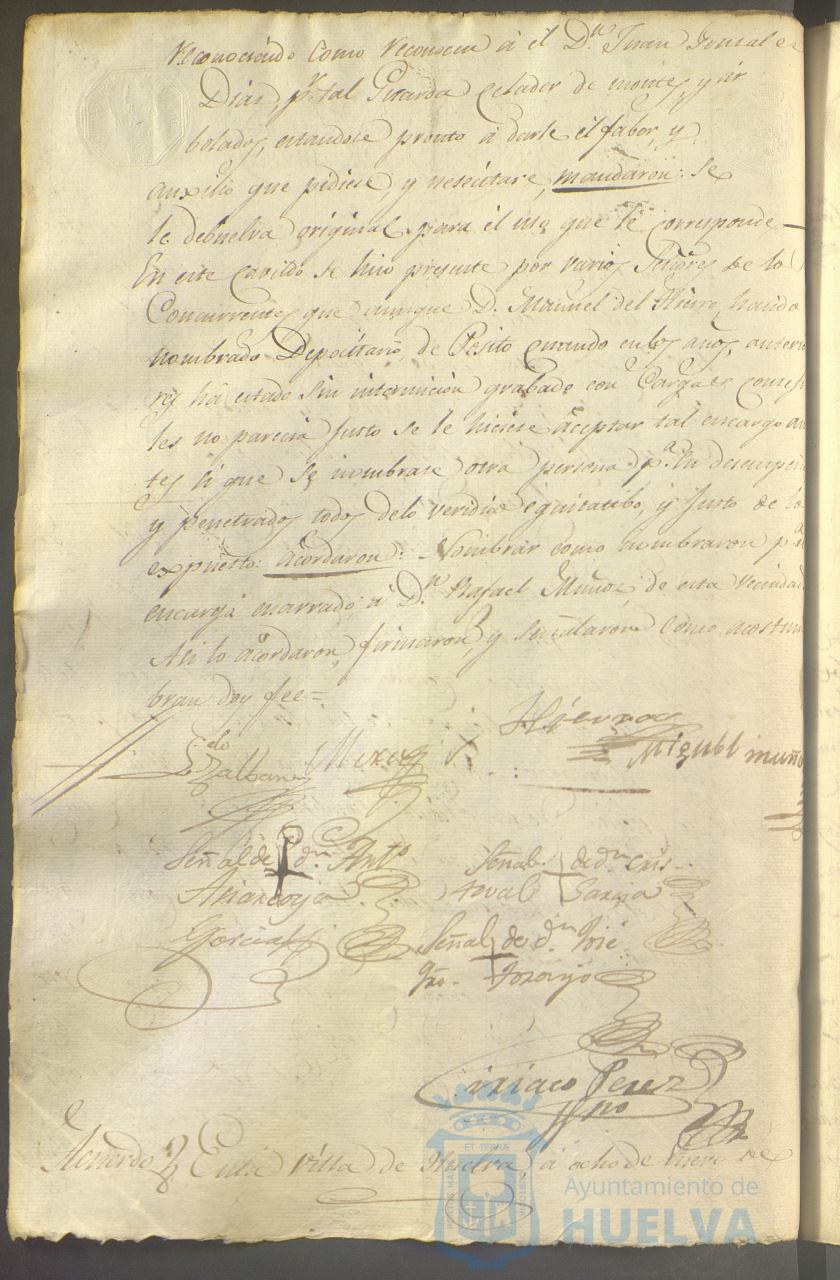 reconociendo como reconocen á el Dn. Juan Gonzale
Dias, pr. tal Guarda celador de montes, y ar
bolados, estandose pronto a darle el fabor, y
auxilio que pidiese, y nesecitare, mandaron: se
le debuelva original para el uso que le corresponde
En este Cavildo se hizo presente por varios Señores de los
Concurrentes que aunque D. Manuel del Hierro, ha sido
nombrado Depocitario, de Posito cuando en los años, anterio
res ha estado sin intermición grabado con Cargas consegi
les no parecia Justo se le hiciese aceptar tal encargo an
tes si que se nombrase otra persona pa. su desempeño
y penetrados todos de lo veridico equitatibo, y Justo de lo
expuesto: acordaron: Nombrar como nombraron pa. el
encargo enarrado á Dn. Rafael Muñoz, de esta Vecindad
Asi lo acordaron, firmaron, y señalaron como acostum
bran doy fee=
Hierro
Miguel muño
Señal de dn. Anto
Señal de dn. Cris-
toval Garcia
Garcia
Señal de dn. José
Toronjo
Ciriaco Perez
Acuerdo } En la Villa de Huelva, á ocho de Enero de
Ayuntamiento de
HUELVA